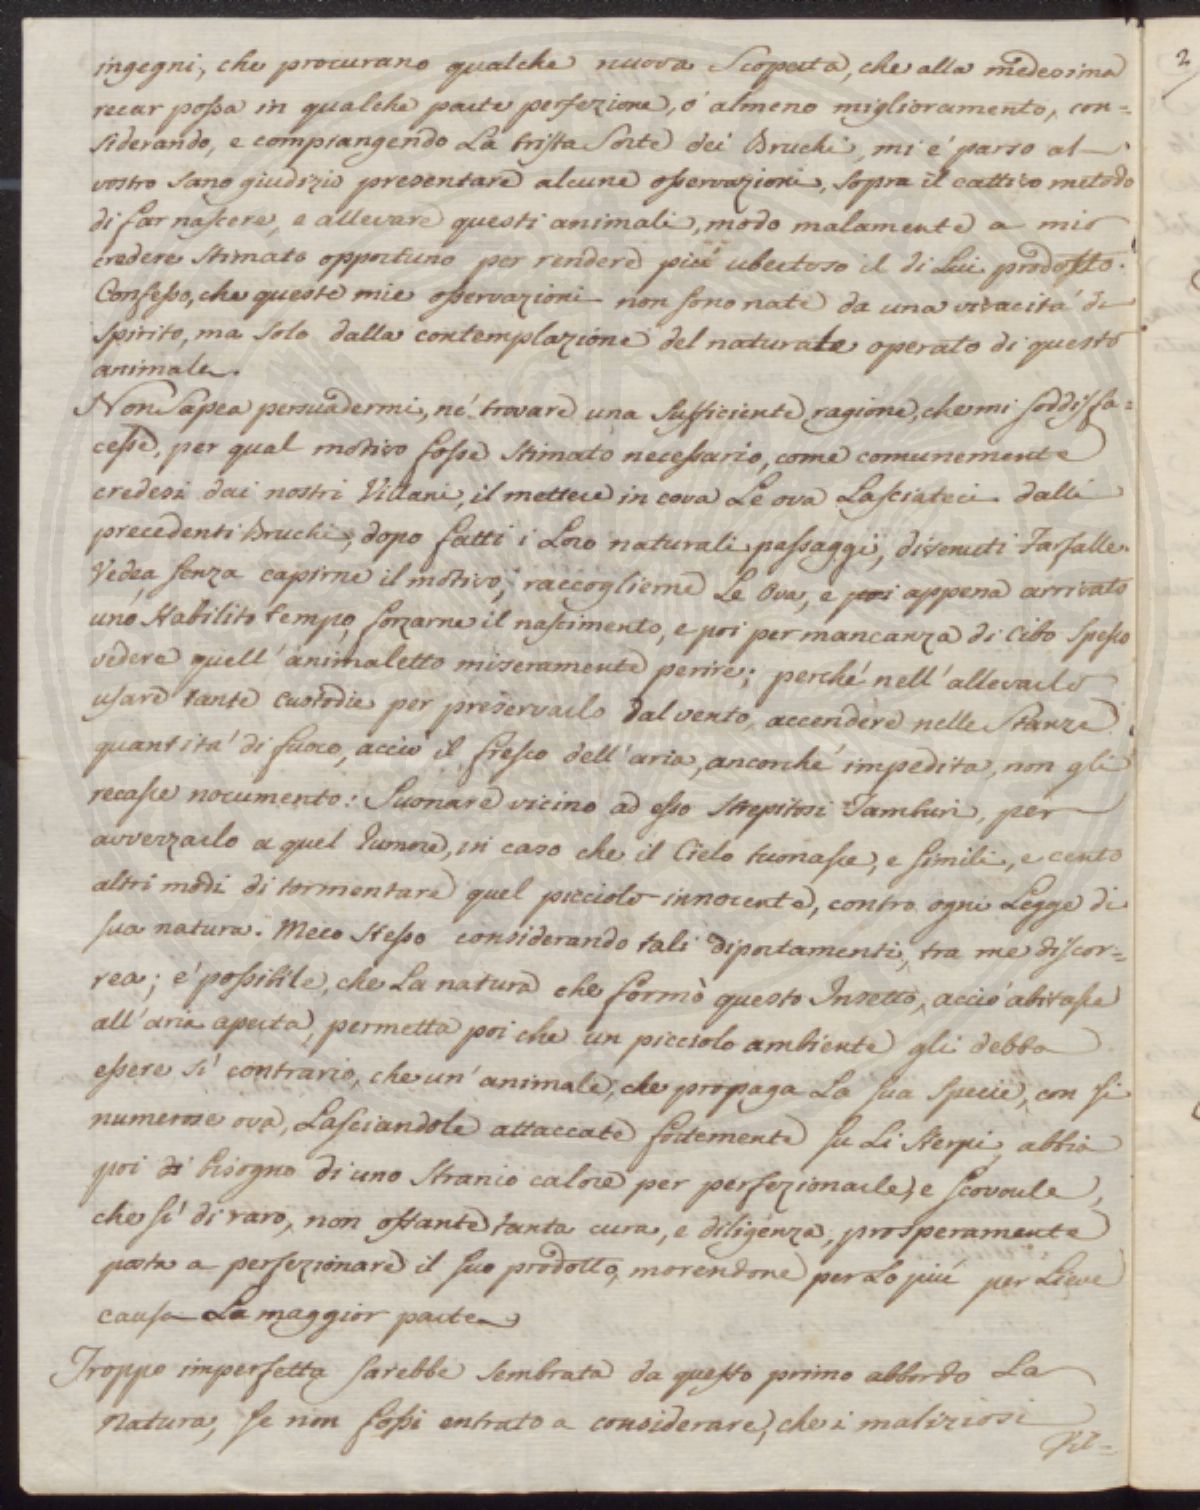 ingegni, che procurano qualche nuova Scoperta, che alla medesima
recar possa in qualche parte perfezione, o' almeno miglioramento, con=
siderando, e compiangendo La trista Sorte dei Bruchi, mi e' parso al
vostro sano giudizio presentare alcune osservazioni, sopra il cattivo metodo
di far nascere, e allevare questi animali, modo malamente a mio
credere stimato opportuno per rendere piu' ubertoso il di Lui prodotto.
Confesso, che queste mie osservazioni non sono nate da una vivacita' di
spirito, ma solo dalla contemplazione del naturale operato di questo
animale.
Non Sapea persuadermi, ne' trovare una sufficiente ragione, che mi soddisfa=
cesse, per qual motivo fosse stimato necessario, come comunemente
credesi dai nostri Villani, il mettere in cova Le ova Lasciateci dalli
precedenti Bruchi, dopo fatti i Loro naturali passaggi, divenuti Farfalle.
Vedea senza capirne il motivo, raccoglierne Le Ova, e poi appena arrivato
uno stabilito tempo, forzarne il nascimento, e poi per mancanza di Cibo spesso
vedere quell' animaletto miseramente perire; perché nell' allevarlo
usare tante custodie per preservarlo dal vento, accendere nelle Stanze
quantita' di fuoco, accio il fresco dell' aria, ancorché impedita, non gli
recasse nocumento: Suonare vicino ad esso strepitosi Tamburi, per
avvezzarlo a quel Rumore, in caso che il Cielo tuonasse, e simili, e cento
altri modi di tormentare quel picciolo innocente, contro ogni Legge di
sua natura. Meco stesso considerando tali diportamenti, tra me discor=
rea; e' possibile, che La natura che formò questo Insetto, acciò abitasse
all' aria aperta, permetta poi che un picciolo ambiente gli debba
essere si' contrario, che un' animale, che propaga La sua specie, con si
numerose ova, Lasciandole attaccate fortemente su Li sterpi, abbia
poi di bisogno di uno stranio calore per perfezionarle, e scovarle,
che si' di raro, non ostante tanta cura, e diligenza, prosperamente
porta a perfezionare il suo prodotto, morendone per Lo piu' per Lieve
causa La maggior parte.
Troppo imperfetta sarebbe sembrata da questo primo abbordo La
Natura, se non fossi entrato a considerare, che i maliziosi
2